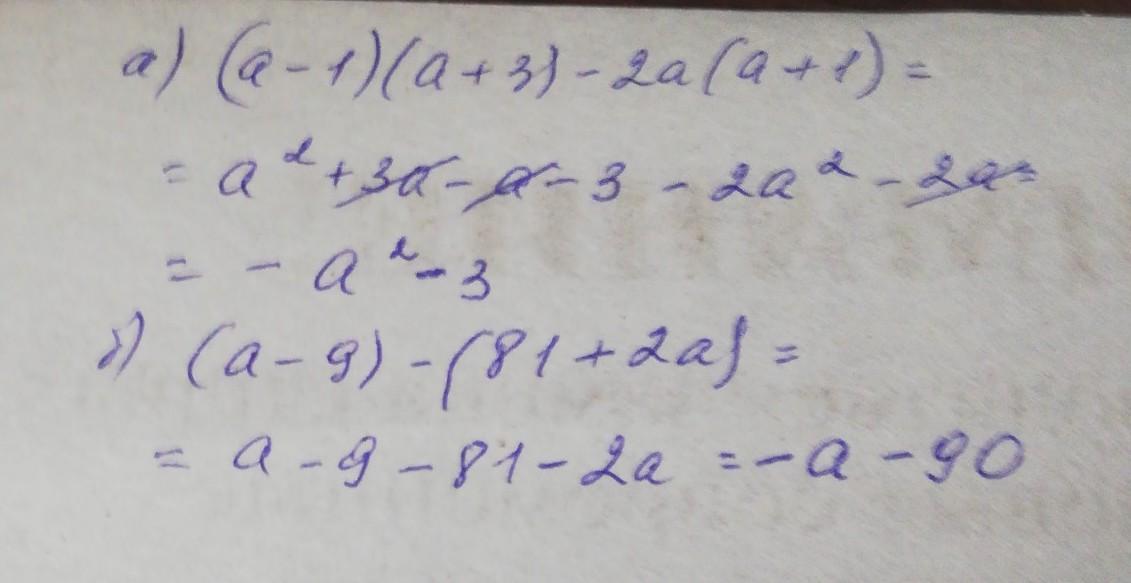 а) (a-1)(a+3)-2a(a+1)=
= a²+3a-a-3-2a²-2a=
= -a²-3
б) (a-9)-(81+2a)=
= a-9-81-2a=-a-90